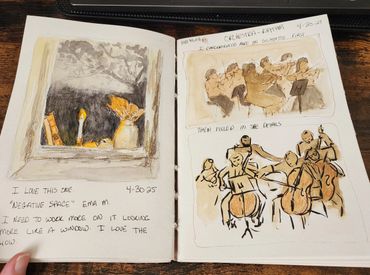 I LOVE THIS ONE. 4-30-25
"NEGATIVE SPACE" EMA M.
I NEED TO WORK MORE ON IT LOOKING
MORE LIKE A WINDOW. I LOVE THE
ORCHESTRA 4-30-25
I CONCENTRATED ON SILHOUETTE FIRST
THEN FILLED IN THE DETAILS